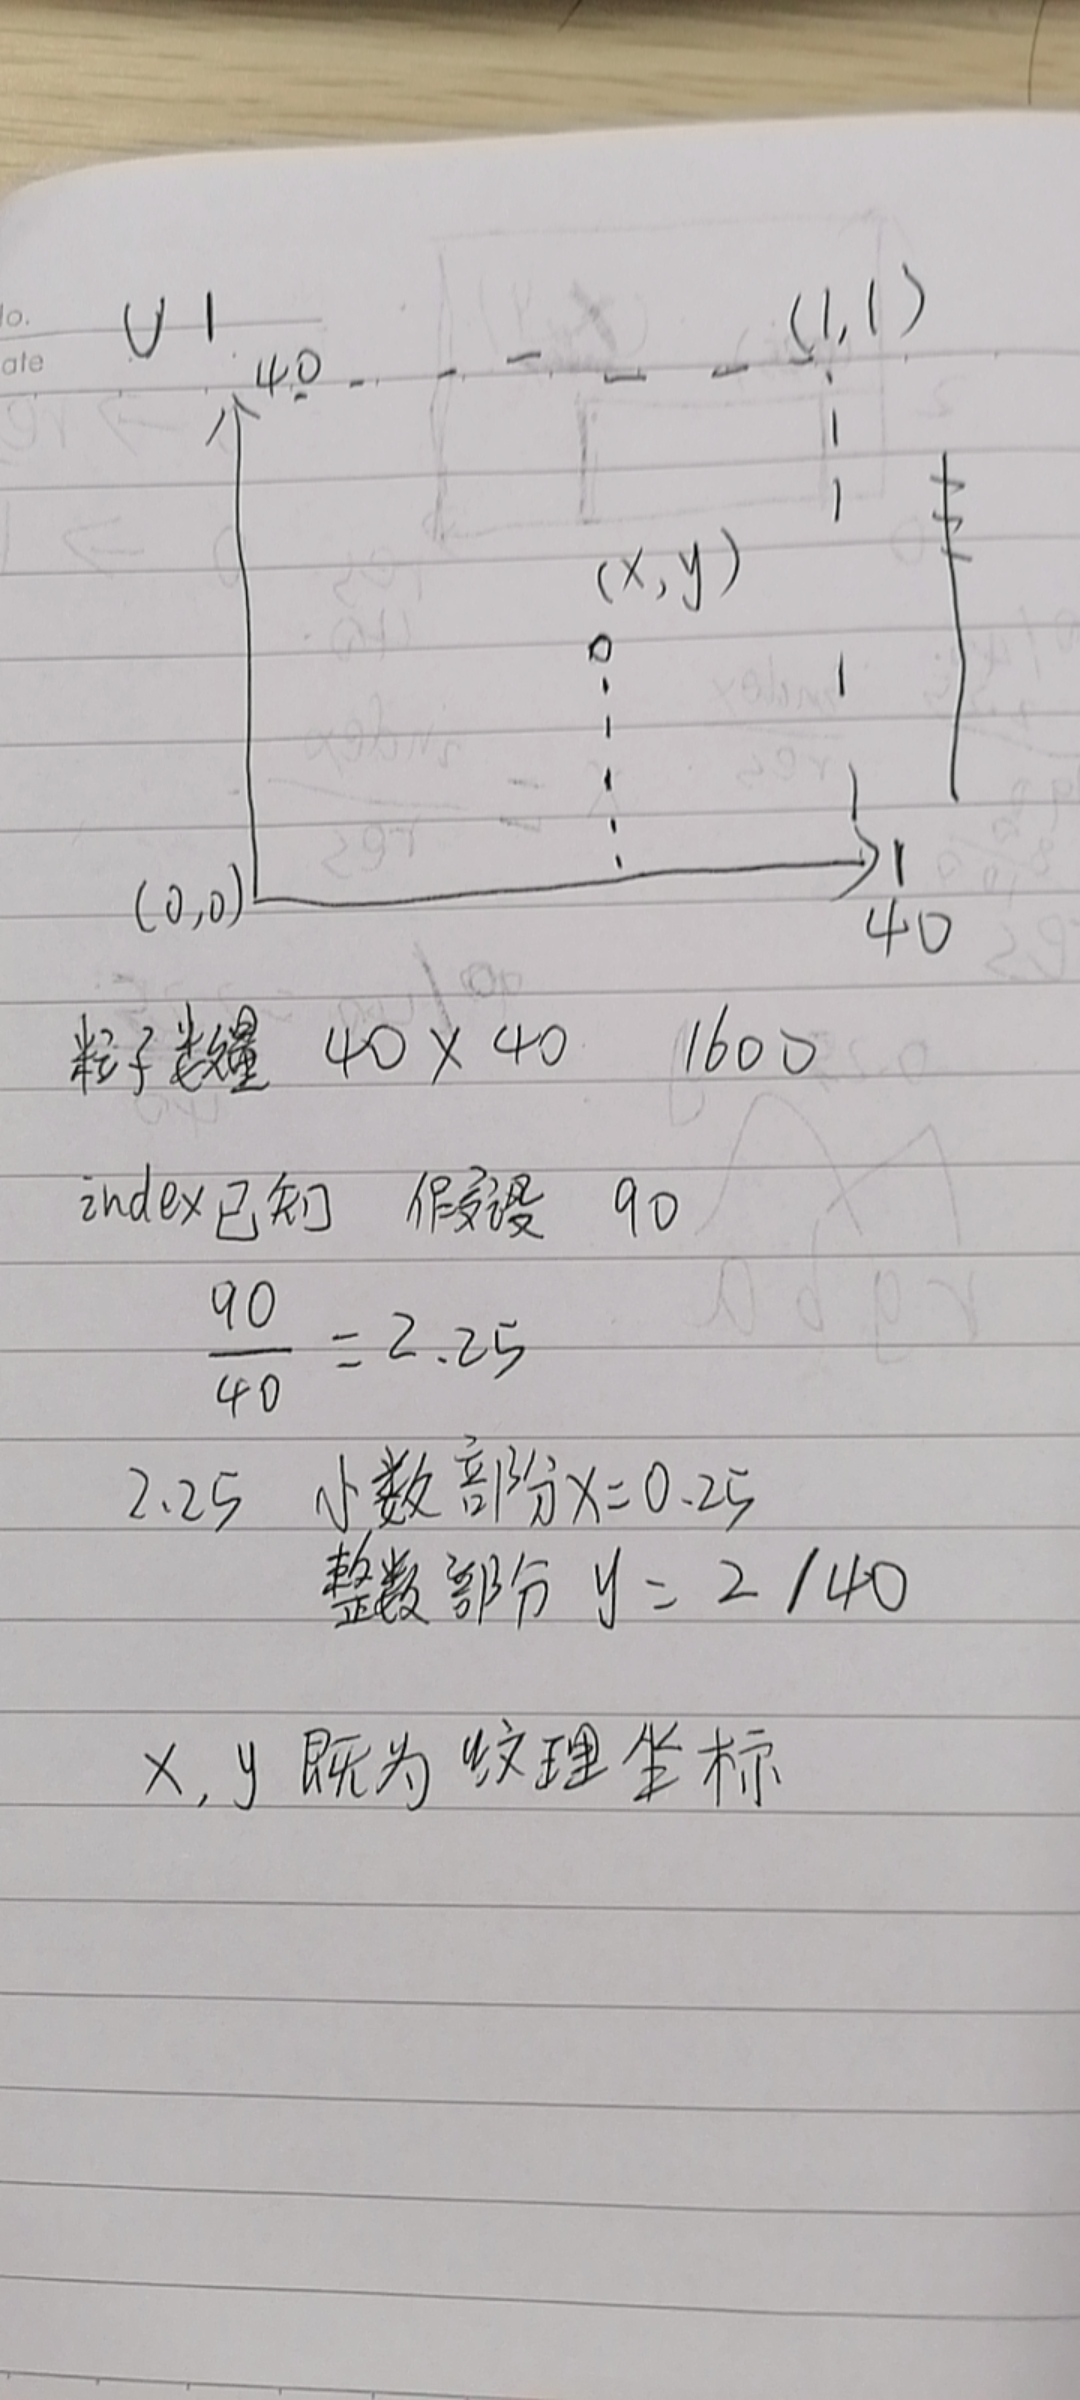 No.
Date
U 1
(1,1)
40
(x,y)
(0,0)
1
40
粒子数量 40 x 40 1600
index已知 假设 90
90
40
= 2.25
2.25 小数部分x=0.25
整数部分 y = 2 / 40
x, y 既为纹理坐标